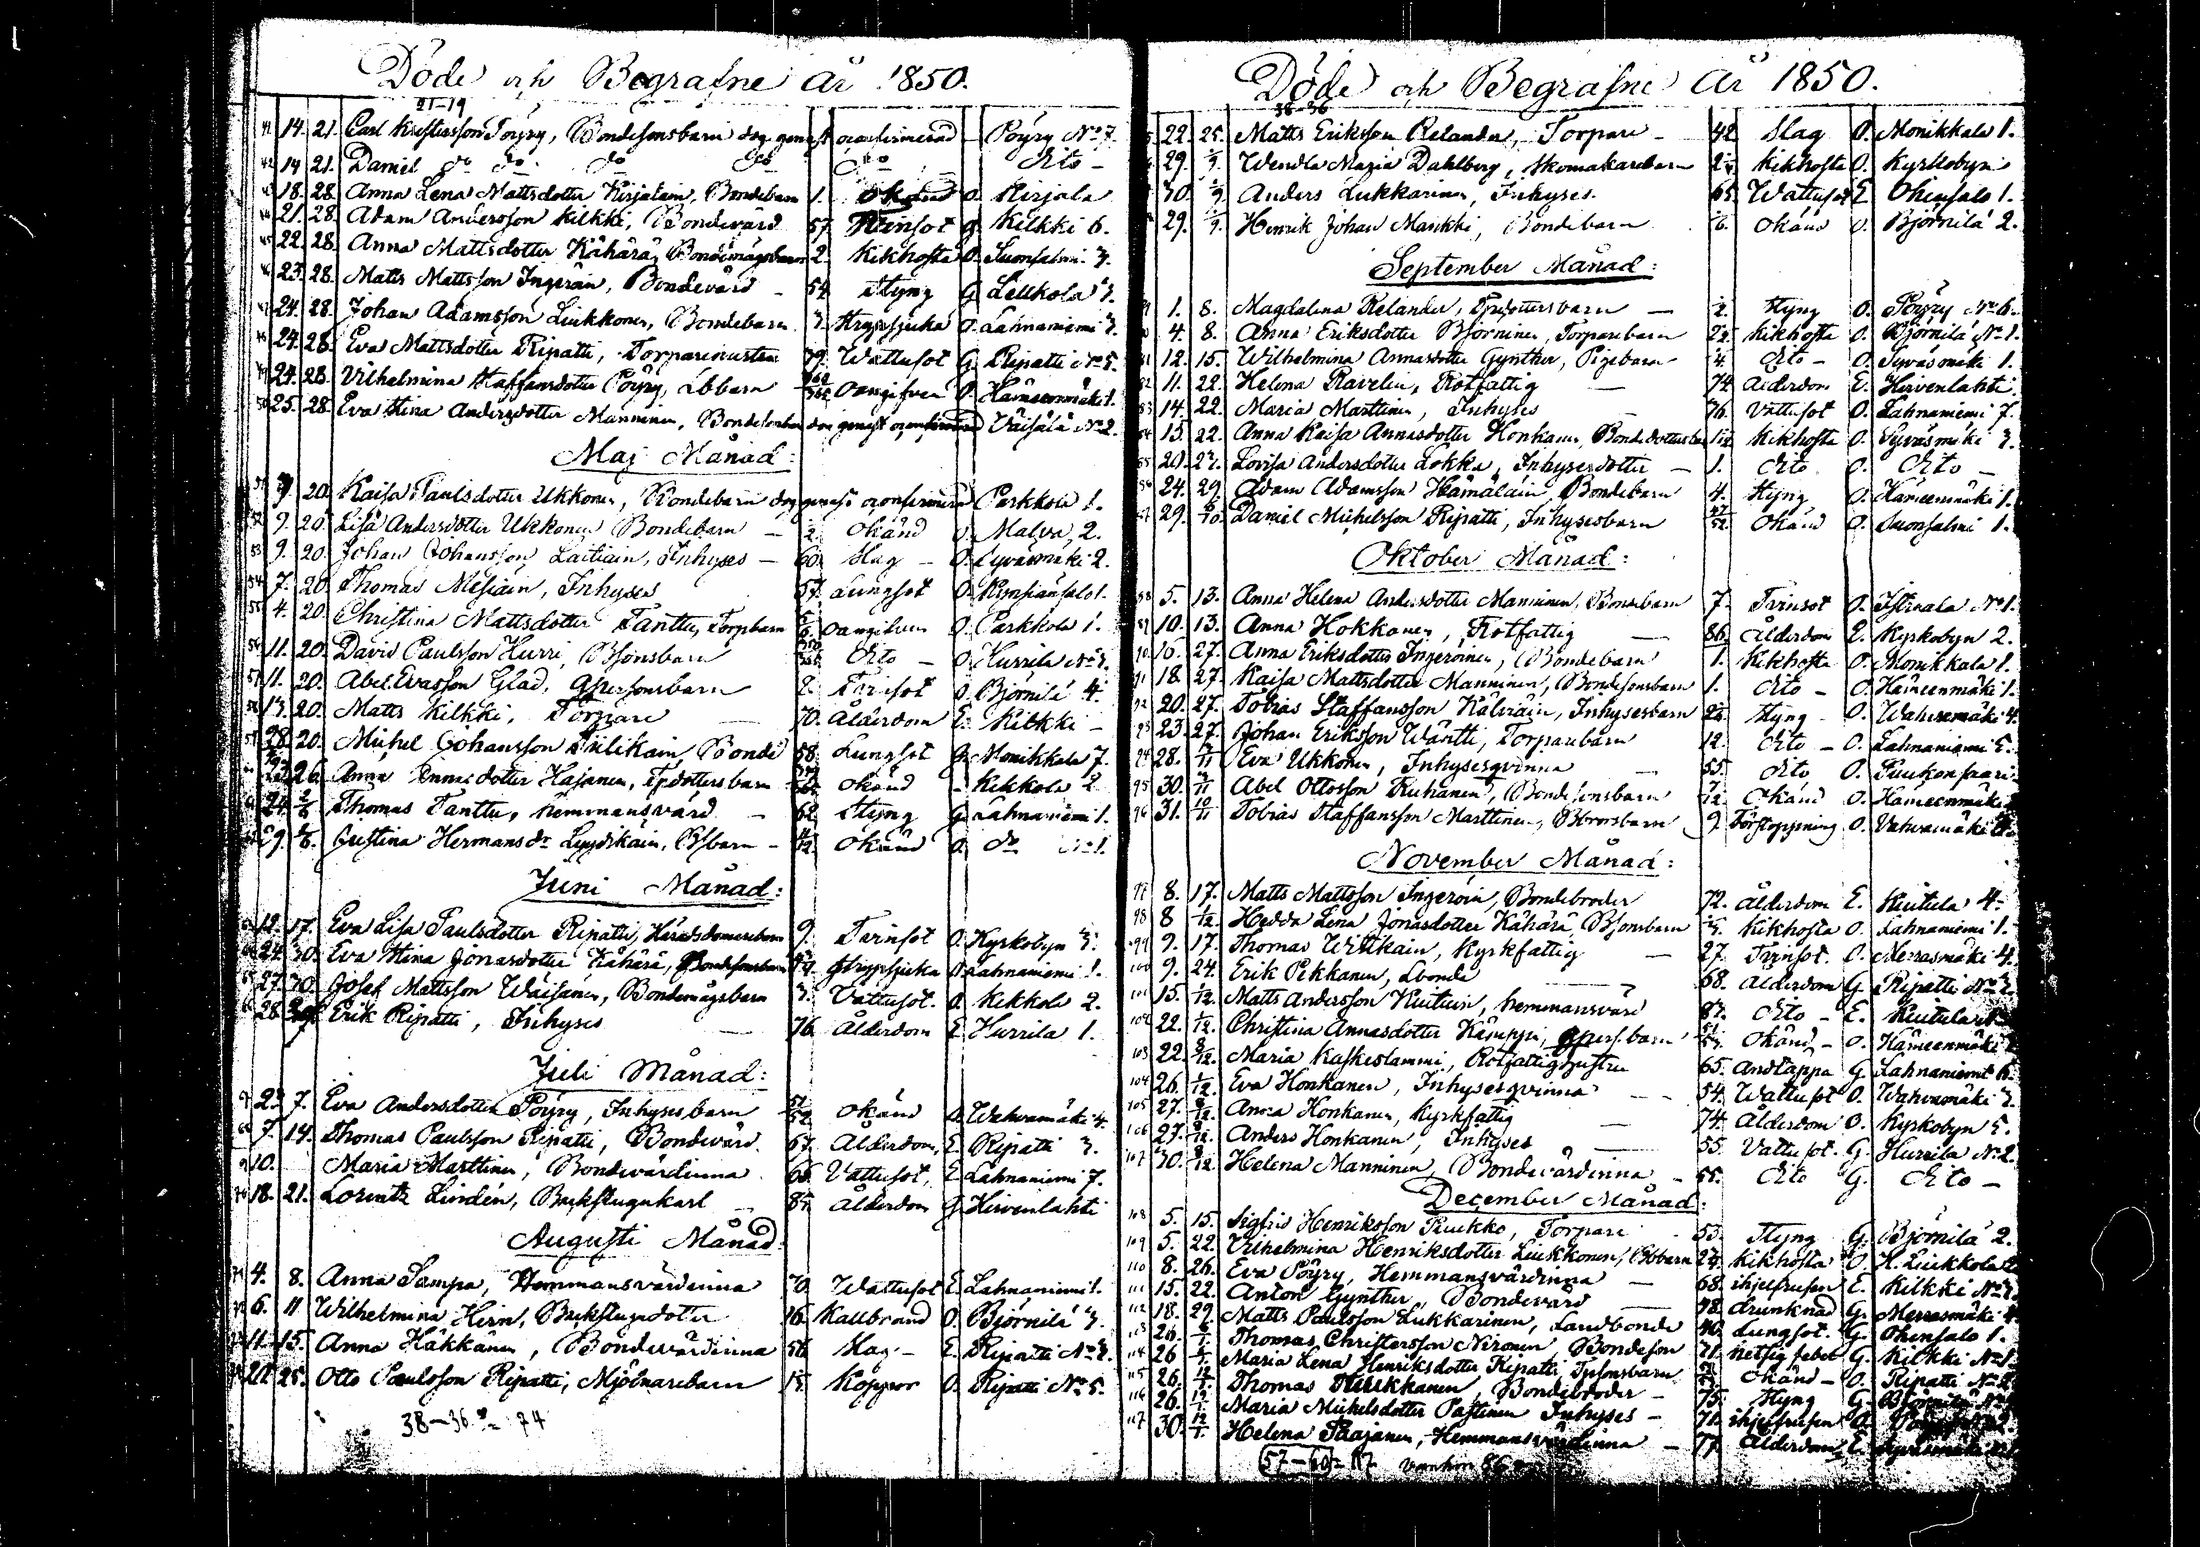 Döde och Begrafne år 1850.
21-19
41 14. 21. Carl Kristersson Pöyry, Bondesonsbarn dog genast oconfirmerad Pöyry No 7.
42 14 21. Daniel do do do do do Dito -
43 18. 28. Anna Lena Mattsdotter Kirjalain, Bondebarn 1. Okänd O. Kirjala
44 21. 28. Adam Andersson Kilkki, Bondevärd 57. Tvinsot G. Kilkki 6.
45 22. 28. Anna Mattsdotter Kähärä, Bondemågsbarn 2. Kikhosta O. Suonsalmi 3.
46 23. 28. Matts Mattsson Ingeröin, Bondevärd - 54 Styng G. Leukkola 3.
47 24. 28. Johan Adamsson Liukkonen, Bondebarn 3. Strypsjuka O. Lahnaniemi 3.
48 24. 28. Eva Mattsdotter Ripatti, Torparenustru 79. Wattusot G. Ripatti No 5.
49 24. 28. Vilhelmina Staffansdotter Pöyry, Lbbarn oangifven O. Hämeenmäki 1.
50 25. 28. Eva Stina Andersdotter Manninen, Bondesonbarn dog genast Väisälä No 2.
Maj Månad:
20. Kaisa Paulsdotter Ukkonen, Bondebarn dog genast Parkkola 1.
52 9. 20. Lisa Andersdotter Ukkonen Bondebarn - 2. Okänd O. Malva 2.
53 9. 20. Johan Johansson Laitiain, Inhyses - 60. Slag - O. Syväsmäki 2.
54 7. 20. Thomas Mesiäin, Inhyses 57. Lungsot O. Kynsiänsalo 1.
55 4. 20. Christina Mattsdotter Tanttu, Torpbarn Oangifven O. Parkkola 1.
56 11. 20. David Paulsson Hurri, Bsonsbarn Dito - O. Hurrila No 3.
57 11. 20. Abel Evasson Glad, Qpersonsbarn 2. Tvinsot O. Björnilä 4.
58 13. 20. Matts Kilkki, Torpare - 70. Ålderdom E. Kilkki -
59 20. Michel Johansson Tiilikain, Bonde 58. Lungsot G. Monikkala 7.
60 26. Anna Annasdotter Hajanen, Tpdottersbarn Okänd - Kekkola 2
61 24. 2/6 Thomas Tanttu, Hemmansvärd - 62. Styng G. Lahnaniemi 1.
62 29. 2/6. Cristina Hermansdr Lyydikäin, Bsbarn - Okänd O. do No 1.
Juni Månad:
63 12. 17. Eva Lisa Paulsdotter Ripatti, Häradsdomarebarn 9. Tvinsot O. Kyrkobyn 3.
64 24. 30. Eva Stina Jonasdotter Kähärä, Bondesonsbarn Strypsjuka O. Lahnaniemi 1.
65 27. 30. Josef Mattsson Wäisänen, Bondemågsbarn 3. Vattusot. O. Kekkola 2.
66 28. Erik Ripatti, Inhyses - 76. Ålderdom E. Hurrila 1.
Juli Månad:
67 2. 7. Eva Andersdotter Pöyry, Inhysesbarn 51/52 Okänd O. Wahvamäki 4.
68 7. 14. Thomas Paulsson Ripatti, Bondevärd. 67. Ålderdom, E. Ripatti 3.
69 10. Maria Marttinen, Bondevärdinna 65. Vattusot, E. Lahnaniemi 7.
70 18. 21. Lorentz Lindén, Backstugukarl - 85. Ålderdom G. Hirvenlahti
Augusti Månad:
71 4. 8. Anna Sampa, Hemmansvärdinna 70. Wattusot E. Lahnaniemi 1.
72 6. 11 Wilhelmina Hirn, Backstugudotter 16. Kallbrand O. Björnilä 3.
73 11. 15. Anna Häkkänen, Bondevärdinna 56. Slag - E. Ripatti No 3.
74 21. 25. Otto Paulsson Ripatti, Mjölnarebarn 15. Koppor O. Ripatti No 5.
38-36 = 74
Döde och Begrafne år 1850.
38-36
22. 25. Matts Eriksson Relander, Torpare - 42 Slag O. Monikkala 1.
29. 1/9. Wendla Maria Dahlberg, Skomakarebarn Kikhosta O. Kyrkobyn
30. 1/9. Anders Lukkarinen, Inhyses 65. Wattusot E. Ohensalo 1.
29. 1/9. Henrik Johan Markki, Bondebarn Okänd O. Björnilä 2.
September Månad:
1. 8. Magdalena Relander, Tpdottersbarn - 2. Styng O. Pöyry No 6.
4. 8. Anna Eriksdotter Björninen, Torparebarn Kikhosta O. Björnilä No 1.
81 12. 15. Wilhelmina Annasdotter Gynther, Pigebarn Dito - O. Syväsmäki 1.
82 11. 22. Helena Ravelin, Rotfattig - 74 Ålderdom E. Hirvenlahti.
83 14. 22. Maria Marttinen, Inhyses - 76. Vattusot O. Lahnaniemi 7.
84 15. 22. Anna Kaisa Annasdotter Honkanen, Bondedottersbarn Kikhosta O. Syväsmäki 3.
85 20. 27. Lovisa Andersdotter Lokka, Inhysesdotter - 1. Dito O. Dito -
86 24. 29 Adam Adamsson Hämäläin, Bondebarn 4. Styng O. Hämeenmäki 1.
87 29. 6/10. Daniel Michelsson Ripatti, Inhysesbarn Okänd O. Suonsalmi 1.
Oktober Månad:
88 5. 13. Anna Helena Andersdotter Manninen, Bondebarn 7. Tvinsot O. Istrala No 1.
89 10. 13. Anna Hokkanen, Rotfattig - 86. Ålderdom E. Kyrkobyn 2.
90 10. 27. Anna Eriksdotter Ingeröinen, Bondebarn 1. Kikhosta O. Monikkala 1.
91 18 27. Kaisa Mattsdotter Manninen, Bondesonsbarn 1. Dito - O. Hämeenmäki 1.
92 20. 27. Tobias Staffansson Kälviäin, Inhysesbarn Styng - O. Wahvamäki 4.
93 23. 27. Johan Eriksson Wäntti, Torparebarn 12. Dito - O. Lahnaniemi 5.
94 28. Eva Ukkonen, Inhysesqvinna - 55. Dito O. Puukonsaari
95 30. Abel Ottosson Kuhanen, Bondesonsbarn Okänd O. Hämeenmäki
96 31. 10/11 Tobias Staffansson Marttinen, Bbrorsbarn 9. Förstoppning O. Vahvamäki
November Månad:
97 8. 17. Matts Mattsson Ingeröin, Bondebroder 72. Ålderdom E. Kuitula 4.
98 8 1/12. Hedda Lena Jonasdotter Kähärä, Bsonsbarn Kikhosta O. Lahnaniemi 1.
99 9. 17. Thomas Wittikäin, Kyrkfattig - 27. Tvinsot. O. Merrasmäki 4.
100 9. 24. Erik Pekkanen, Lbonde - 68. Ålderdom G. Ripatti No 3.
101 15. 1/12. Matts Andersson Kuituin, Hemmansvärd 87. Dito - E. Kuitula
102 22. 1/12. Christina Annasdotter Kämppi, Qpers.barn Okänd - O. Hämeenmäki
103 22. 8/12. Maria Kaskeslammi, Rotfattighustru 65. Andtäppa G. Lahnaniemi 6.
104 26. 1/12. Eva Honkanen, Inhysesqvinna - 54. Wattusot O. Wahvamäki 3.
105 27. 8/12. Anna Honkanen, Kyrkfattig - 74. Ålderdom O. Kyrkobyn 5.
106 27. 8/12. Anders Honkanen, Inhyses - 55. Vattusot. G. Hurrila No 2.
107 30. 8/12. Helena Manninen, Bondevärdinna - 55. Dito G. Dito -
December Månad:
108 5. 15. Sigfrid Henriksson Ruukko, Torpare 53. Styng G. Björnilä 2.
109 5. 22. Vilhelmina Henriksdotter Liukkonen, Lbbarn Kikhosta O. K. Liukkola
110 8. 26. Eva Pöyry, Hemmansvärdinna - 68. ihjelfrusen E. Kilkki No 2.
111 15. 22. Anton Gynther, Bondevärd - 48. drunknad G. Merrasmäki 4.
112 18. 29. Matts Paulsson Lukkarinen, Landbonde 46. Lungsot. G. Ohensalo 1.
113 26. Thomas Christersson Nironen, Bondeson 21. hetsig feber G. Kilkki No 1.
114 26 Maria Lena Henriksdotter Ripatti, Tpsonsbarn Okänd - O. Ripatti No 2.
115 26. Thomas Bondebroder - 75. Styng G. Björnilä
116 26. Maria Michelsdotter Pastinen Inhyses - 71. ihjelfrusen
117 30. 12/1. Helena Paajanen, Hemmansvärdinna - 77. Ålderdom E. Syväsmäki
57-60 = 117 86